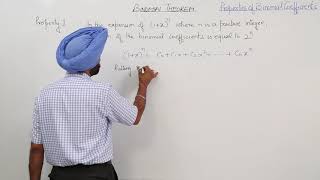 Binomial Theorem
Properties of Binomial Coefficients
Property 1 In the expansion of (1+x)ⁿ where n is a positive integer
of the binomial coefficients is equal to 2ⁿ
(1+x)ⁿ = C₀ + C₁x + C₂x² + ----- + Cₙxⁿ
Putting